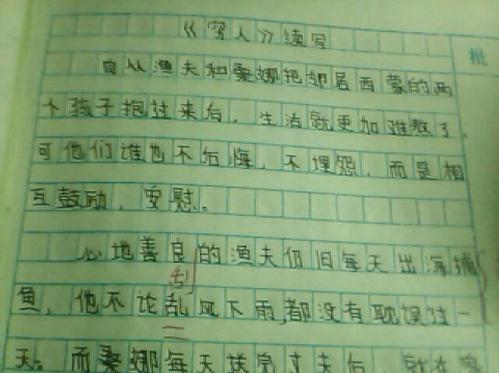 《穷人》续写
批
自从渔夫和桑娜把邻居西蒙的两
个孩子抱过来后，生活就更加难熬了。
可他们谁也不后悔，不埋怨，而是相
互鼓励，安慰。
心地善良的渔夫仍旧每天出海捕
刮
鱼，他不论乱风下雨,都没有耽误过一
天。而桑娜每天送完丈夫后，就在家